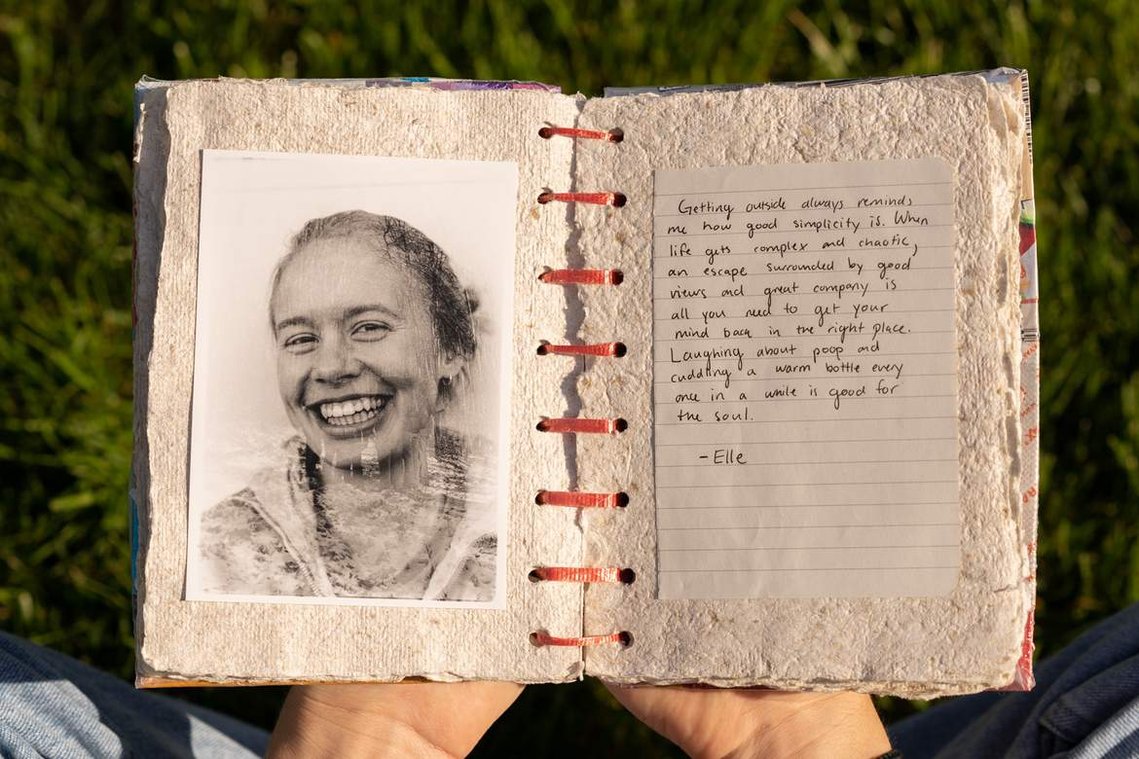 Getting outside always reminds
me how good simplicity is. When
life gets complex and chaotic,
an escape surrounded by good
views and great company is
all you need to get your
mind back in the right place.
Laughing about poop and
cuddling a warm bottle every
once in a while is good for
the soul.
- Elle